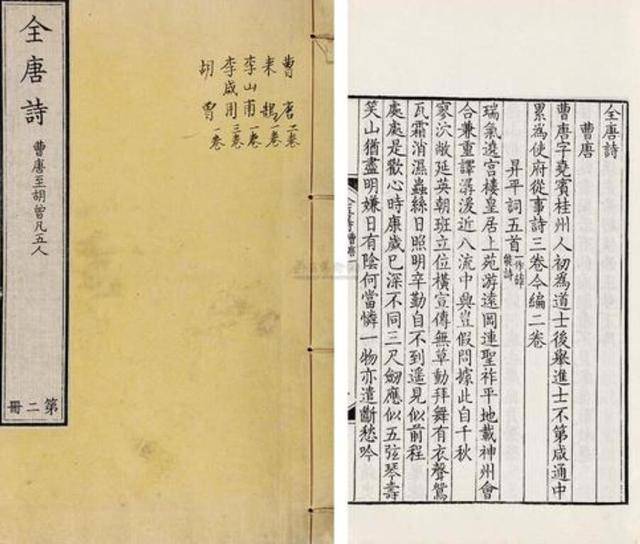 全唐詩
曹唐至胡曾凡五人
第二冊
曹唐 二卷
来鵠 一卷
李山甫 一卷
李咸用 三卷
胡曾 一卷
全唐詩
曹唐
曹唐字堯賓桂州人初為道士後舉進士不第咸通中
累為使府從事詩三卷今編二卷
昇平詞五首
瑞氣遶宮樓皇居上苑游遠岡連聖祚平地載神州會
合兼重譯潺湲近八流中興豈假問據此自千秋
寥泬敞延英朝班立位橫宣傳無草動拜舞有衣聲鴛
瓦霜消濕蟲絲日照明辛勤自不到遥見似前程
處處是歡心時康歲已深不同三尺劒應似五弦琴壽
笑山猶盡明嫌日有陰何當憐一物亦遣斷愁吟